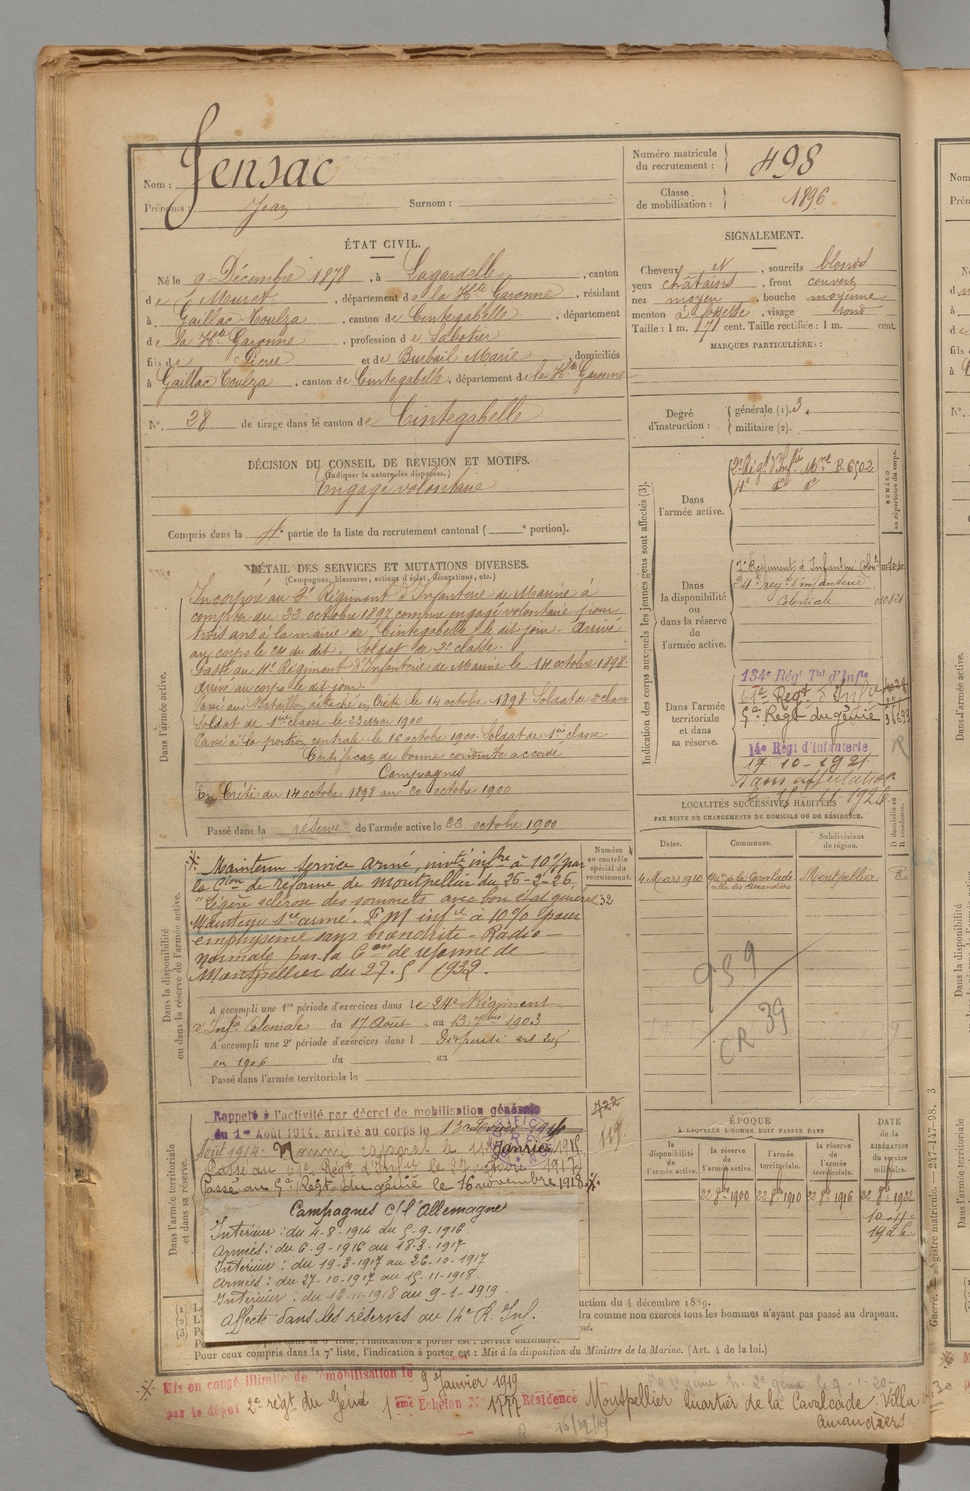 Nom : Jensac
Prénoms : Jean Surnom :
Numéro matricule du recrutement : 498
Classe de mobilisation : 1896
ÉTAT CIVIL.
Né le 9 Décembre 1878, à Lagardelle, canton
de Muret, département de la Hte Garonne, résidant
à Gaillac Toulza, canton de Cintegabelle, département
de la Hte Garonne, profession de Sabotier
fils de Pierre et de Burbail Marie, domiciliés
à Gaillac Toulza, canton de Cintegabelle, département de la Hte Garonne
N°. 28 de tirage dans le canton de Cintegabelle
SIGNALEMENT.
Cheveux et, sourcils blonds
yeux châtains, front couvert
nez moyen, bouche moyenne
menton à fossette, visage rond
Taille : 1 m. 71 cent. Taille rectifiée : 1 m. cent.
MARQUES PARTICULIÈRES :
DÉCISION DU CONSEIL DE RÉVISION ET MOTIFS.
(Indiquer la nature des dispenses.)
Engagé volontaire
Compris dans la 4e partie de la liste du recrutement cantonal ( e portion).
Degré d'instruction : générale (1). 3.
militaire (2).
DÉTAIL DES SERVICES ET MUTATIONS DIVERSES.
(Campagnes, blessures, actions d'éclat, décorations, etc.)
Dans l'armée active.
Incorporé au 2e Régiment d'Infanterie de Marine à
compter du 22 octobre 1897 comme engagé volontaire pour
trois ans à la mairie de Cintegabelle le dit jour. Arrivé
au corps le 24 du dit. Soldat de 2e classe.
Passé au 4e Régiment d'Infanterie de Marine le 14 octobre 1898.
Arrivé au corps le dit jour.
Passé au Bataillon détaché en Crète le 14 octobre 1898 Soldat de 2e classe
Soldat de 1ere classe le 23 mai 1900
Passé à la portion centrale le 16 octobre 1900. Soldat de 1ere classe
Certificat de bonne conduite accordé
Campagnes
En Crète du 14 octobre 1898 au 20 octobre 1900
Passé dans la réserve de l'armée active le 23 octobre 1900
Indication des corps auxquels les jeunes gens sont affectés (3).
NUMÉRO au répertoire du corps.
Dans l'armée active.
2e Régt d'Infie Mne B. 6502
4e do do
Dans la disponibilité ou dans la réserve de l'armée active.
24e régt d'infanterie
Coloniale 010821
Dans l'armée territoriale et dans sa réserve.
134e Régt Tal d'Infie
5e Régt du génie
14e Régt d'Infanterie
17 10-1921
Sans affectation
R
LOCALITÉS SUCCESSIVES HABITÉES
PAR SUITE DE CHANGEMENTS DE DOMICILE OU DE RÉSIDENCE.
Dates. Communes. Subdivisions de région. D domicile ou R résidence.
4 Mars 1910 Qer de la Cavalade villa des Amandiers Montpellier R.
939
CR 39
Dans la disponibilité ou dans la réserve de l'armée active.
Numéro au contrôle spécial du recrutement.
Maintenu service armé, invté infre à 10% par
la Cion de réforme de Montpellier du 26-2-26.
"légère sclérose des sommets avec bon état général"
Maintenu sce armé. I.P.M infre à 10% pour
emphysème sans bronchite - Radio
normale par la Con de réforme de
Montpellier du 27.5 1932.
A accompli une 1re période d'exercices dans le 24e Régiment
d'Infie Coloniale du 17 Août au 13 7bre 1903
A accompli une 2e période d'exercices dans l
en 1906 du au
Passé dans l'armée territoriale le
Dans l'armée territoriale et dans sa réserve.
Rappelé à l'activité par décret de mobilisation générale
du 1er Août 1914, arrivé au corps le
Août 1914.
Passé au 5e Régt du génie le 16 novembre 1918
722
119
Campagnes c/ l'Allemagne
Intérieur : du 4-8-1914 au 5-9-1916
Armées : du 6-9-1916 au 18-3-1917
Intérieur : du 19-3-1917 au 26-10-1917
Armées : du 27-10-1917 au 15-11-1918.
Intérieur : du 16-11-1918 au 9-1-1919.
Affecté dans les réserves au 14e R. Inf.
ÉPOQUE À LAQUELLE L'HOMME DOIT PASSER DANS
la disponibilité de l'armée active. la réserve de l'armée active. l'armée territoriale. la réserve de l'armée territoriale.
DATE de la LIBÉRATION du service militaire.
22 8bre 1900 22 8bre 1910 22 8bre 1916 22 8bre 1922
uction du 4 décembre 1889.
dra comme non exercés tous les hommes n'ayant pas passé au drapeau.
Pour ceux compris dans la 7e liste, l'indication à porter est : Mis à la disposition du Ministre de la Marine. (Art. 4 de la loi.)
Mis en congé illimité de démobilisation le 9 Janvier 1919
par le dépôt 2e régt du Génie 1ème Échelon No 1777 Résidence Montpellier Quartier de la Cavalade : Villa
Amandiers
16/12/19